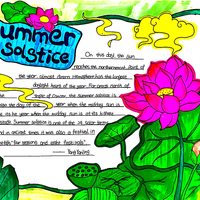 ummer
solstice
On this day, the sun
reaches the northernmost point of
the year, almost Hemisphere has the longest
daylight hours of the year. For areas north of
of Cancer, the Summer solstice is
the day of the year when the midday sun is
the year when the midday sun is at its
Summer solstice is one of the 24 solar terms
in ancient times it was also a festival in
seasons and eight festivals"